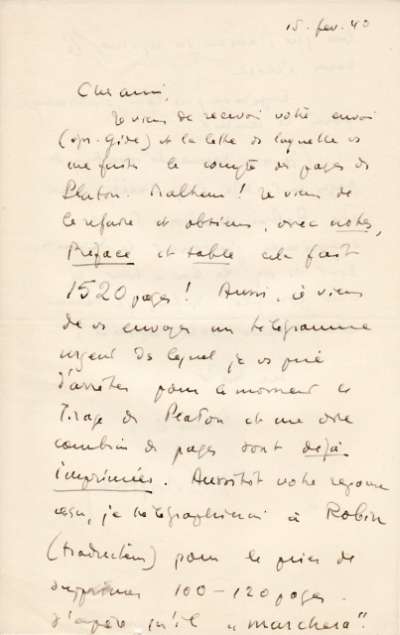 15. fev. 40
Cher ami,
Je viens de recevoir votre envoi
(épr. Gide) et la lettre ds laquelle vs
me faites le compte des pages de
Platon. Malheur! Je viens de
le refaire et obtiens, avec notes,
Préface et table cela fait
1520 pages! Aussi, je viens
de vs envoyer un télégramme
urgent ds lequel je vs prie
d'arrêter pour le moment le
Tirage du Platon et me dire
combien de pages sont déjà
imprimées. Aussitôt votre réponse
reçue, je télégraphierai à Robin
(traducteur) pour le prier de
supprimer 100-120 pages.
J'espère qu'il "marchera".